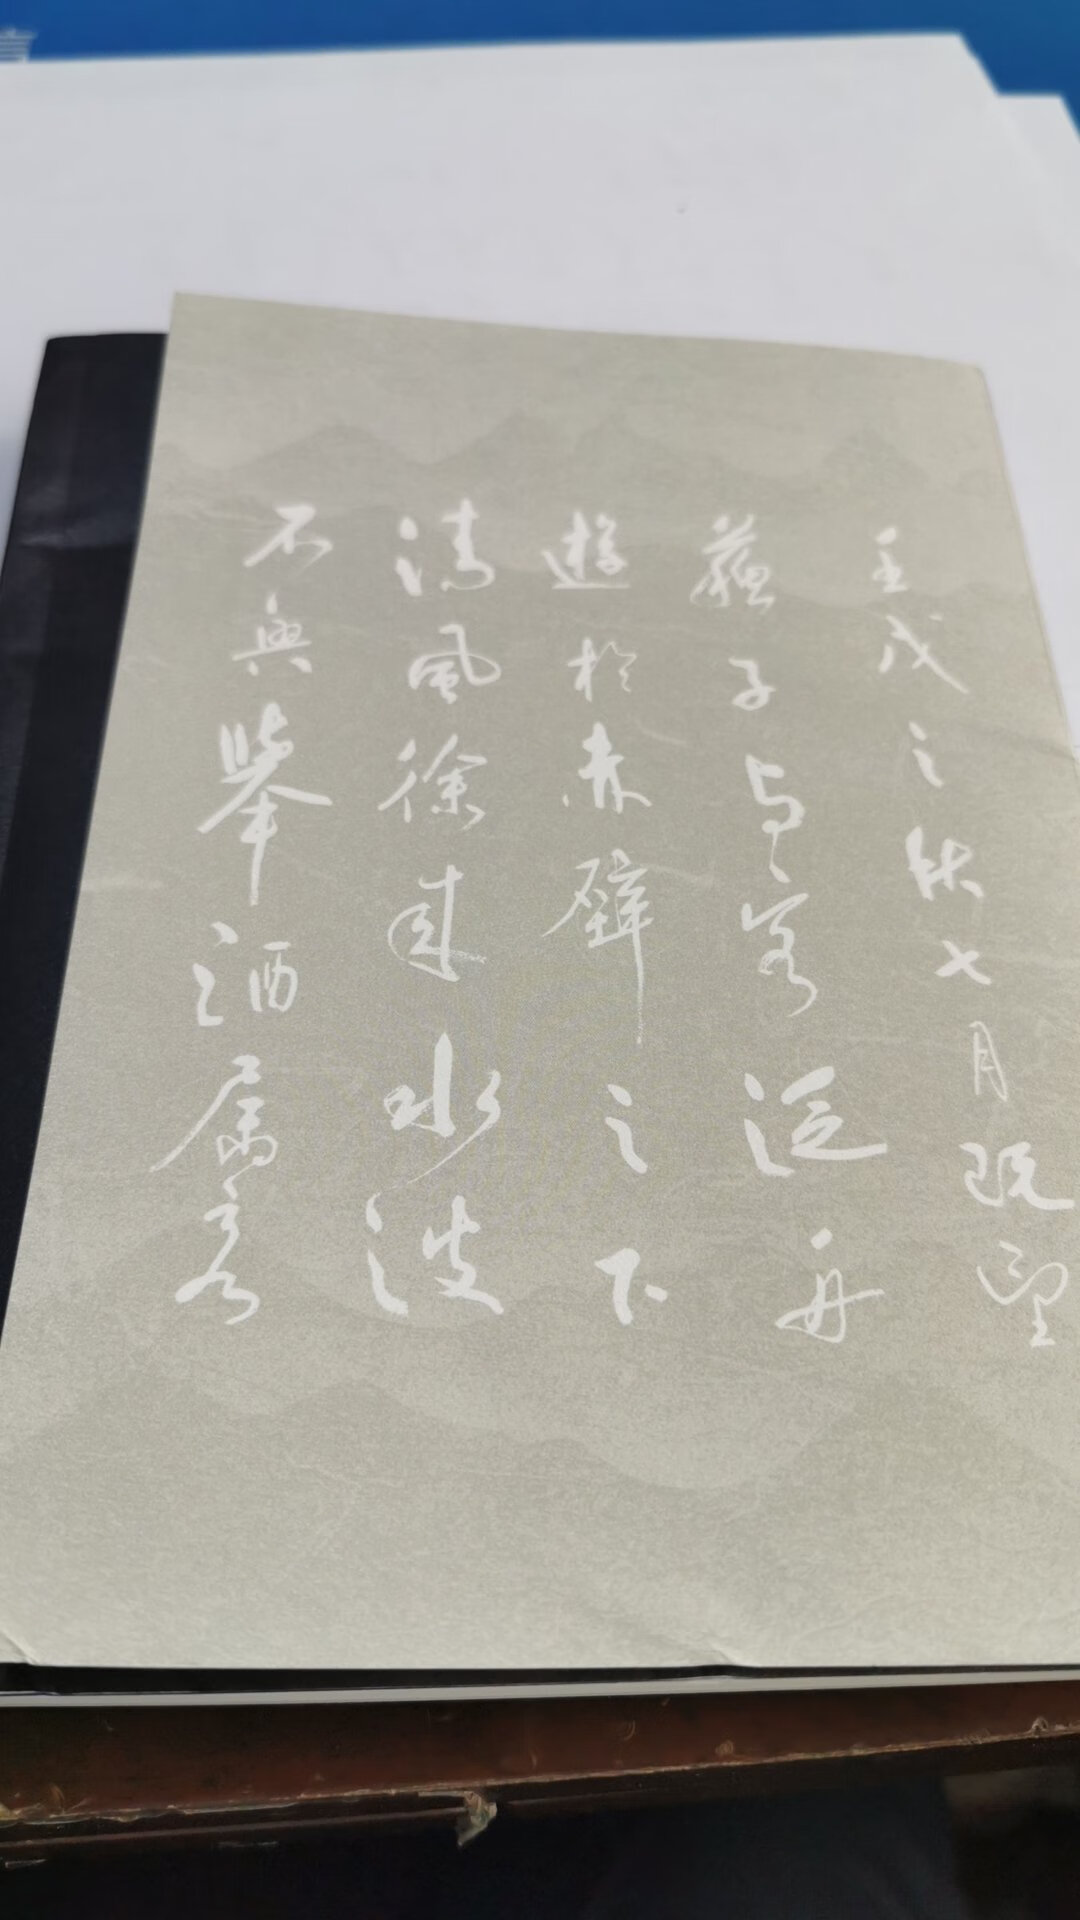 壬戌之秋七月既望
蘇子与客泛舟
遊於赤壁之下
清風徐来水波
不興舉酒属客